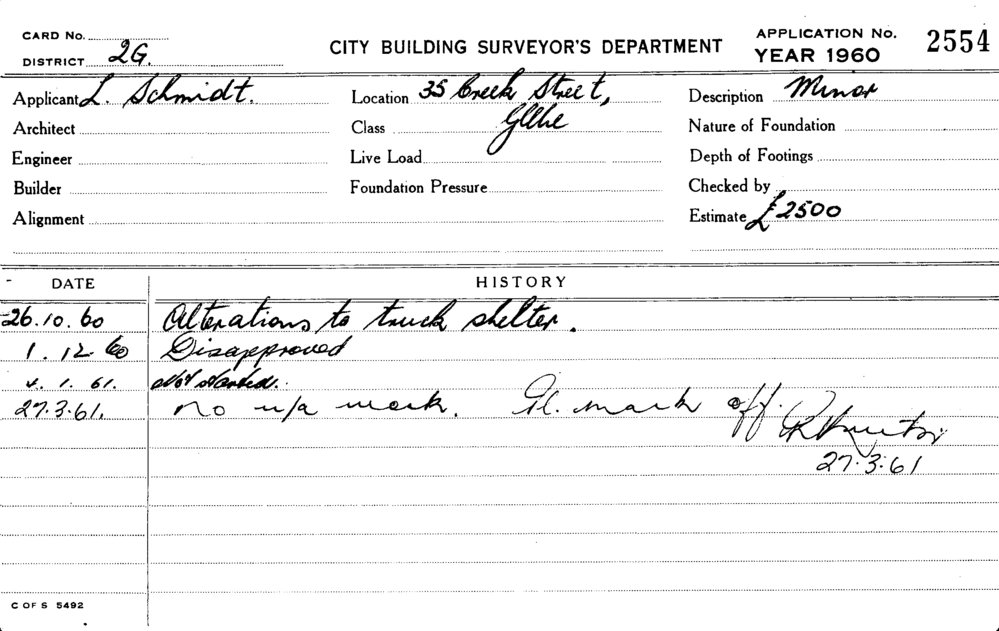 CARD No.
DISTRICT 2G.
CITY BUILDING SURVEYOR'S DEPARTMENT
APPLICATION No. 2554
YEAR 1960
Applicant L. Schmidt.
Location 35 Creek Street,
Glebe
Description Minor
Architect
Class
Nature of Foundation
Engineer
Live Load
Depth of Footings
Builder
Foundation Pressure
Checked by
Alignment
Estimate £2500
DATE HISTORY
26.10.60 Alterations to truck shelter.
1.12.60 Disapproved
4.1.61. Not started.
27.3.61. no u/a work. mark off.
27.3.61
C OF S 5492